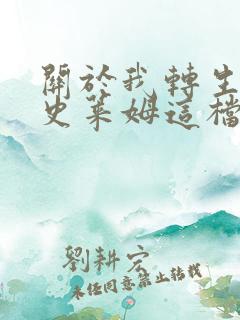 關於我轉生
史萊姆這檔
劉耕宏
未經同意禁止轉載